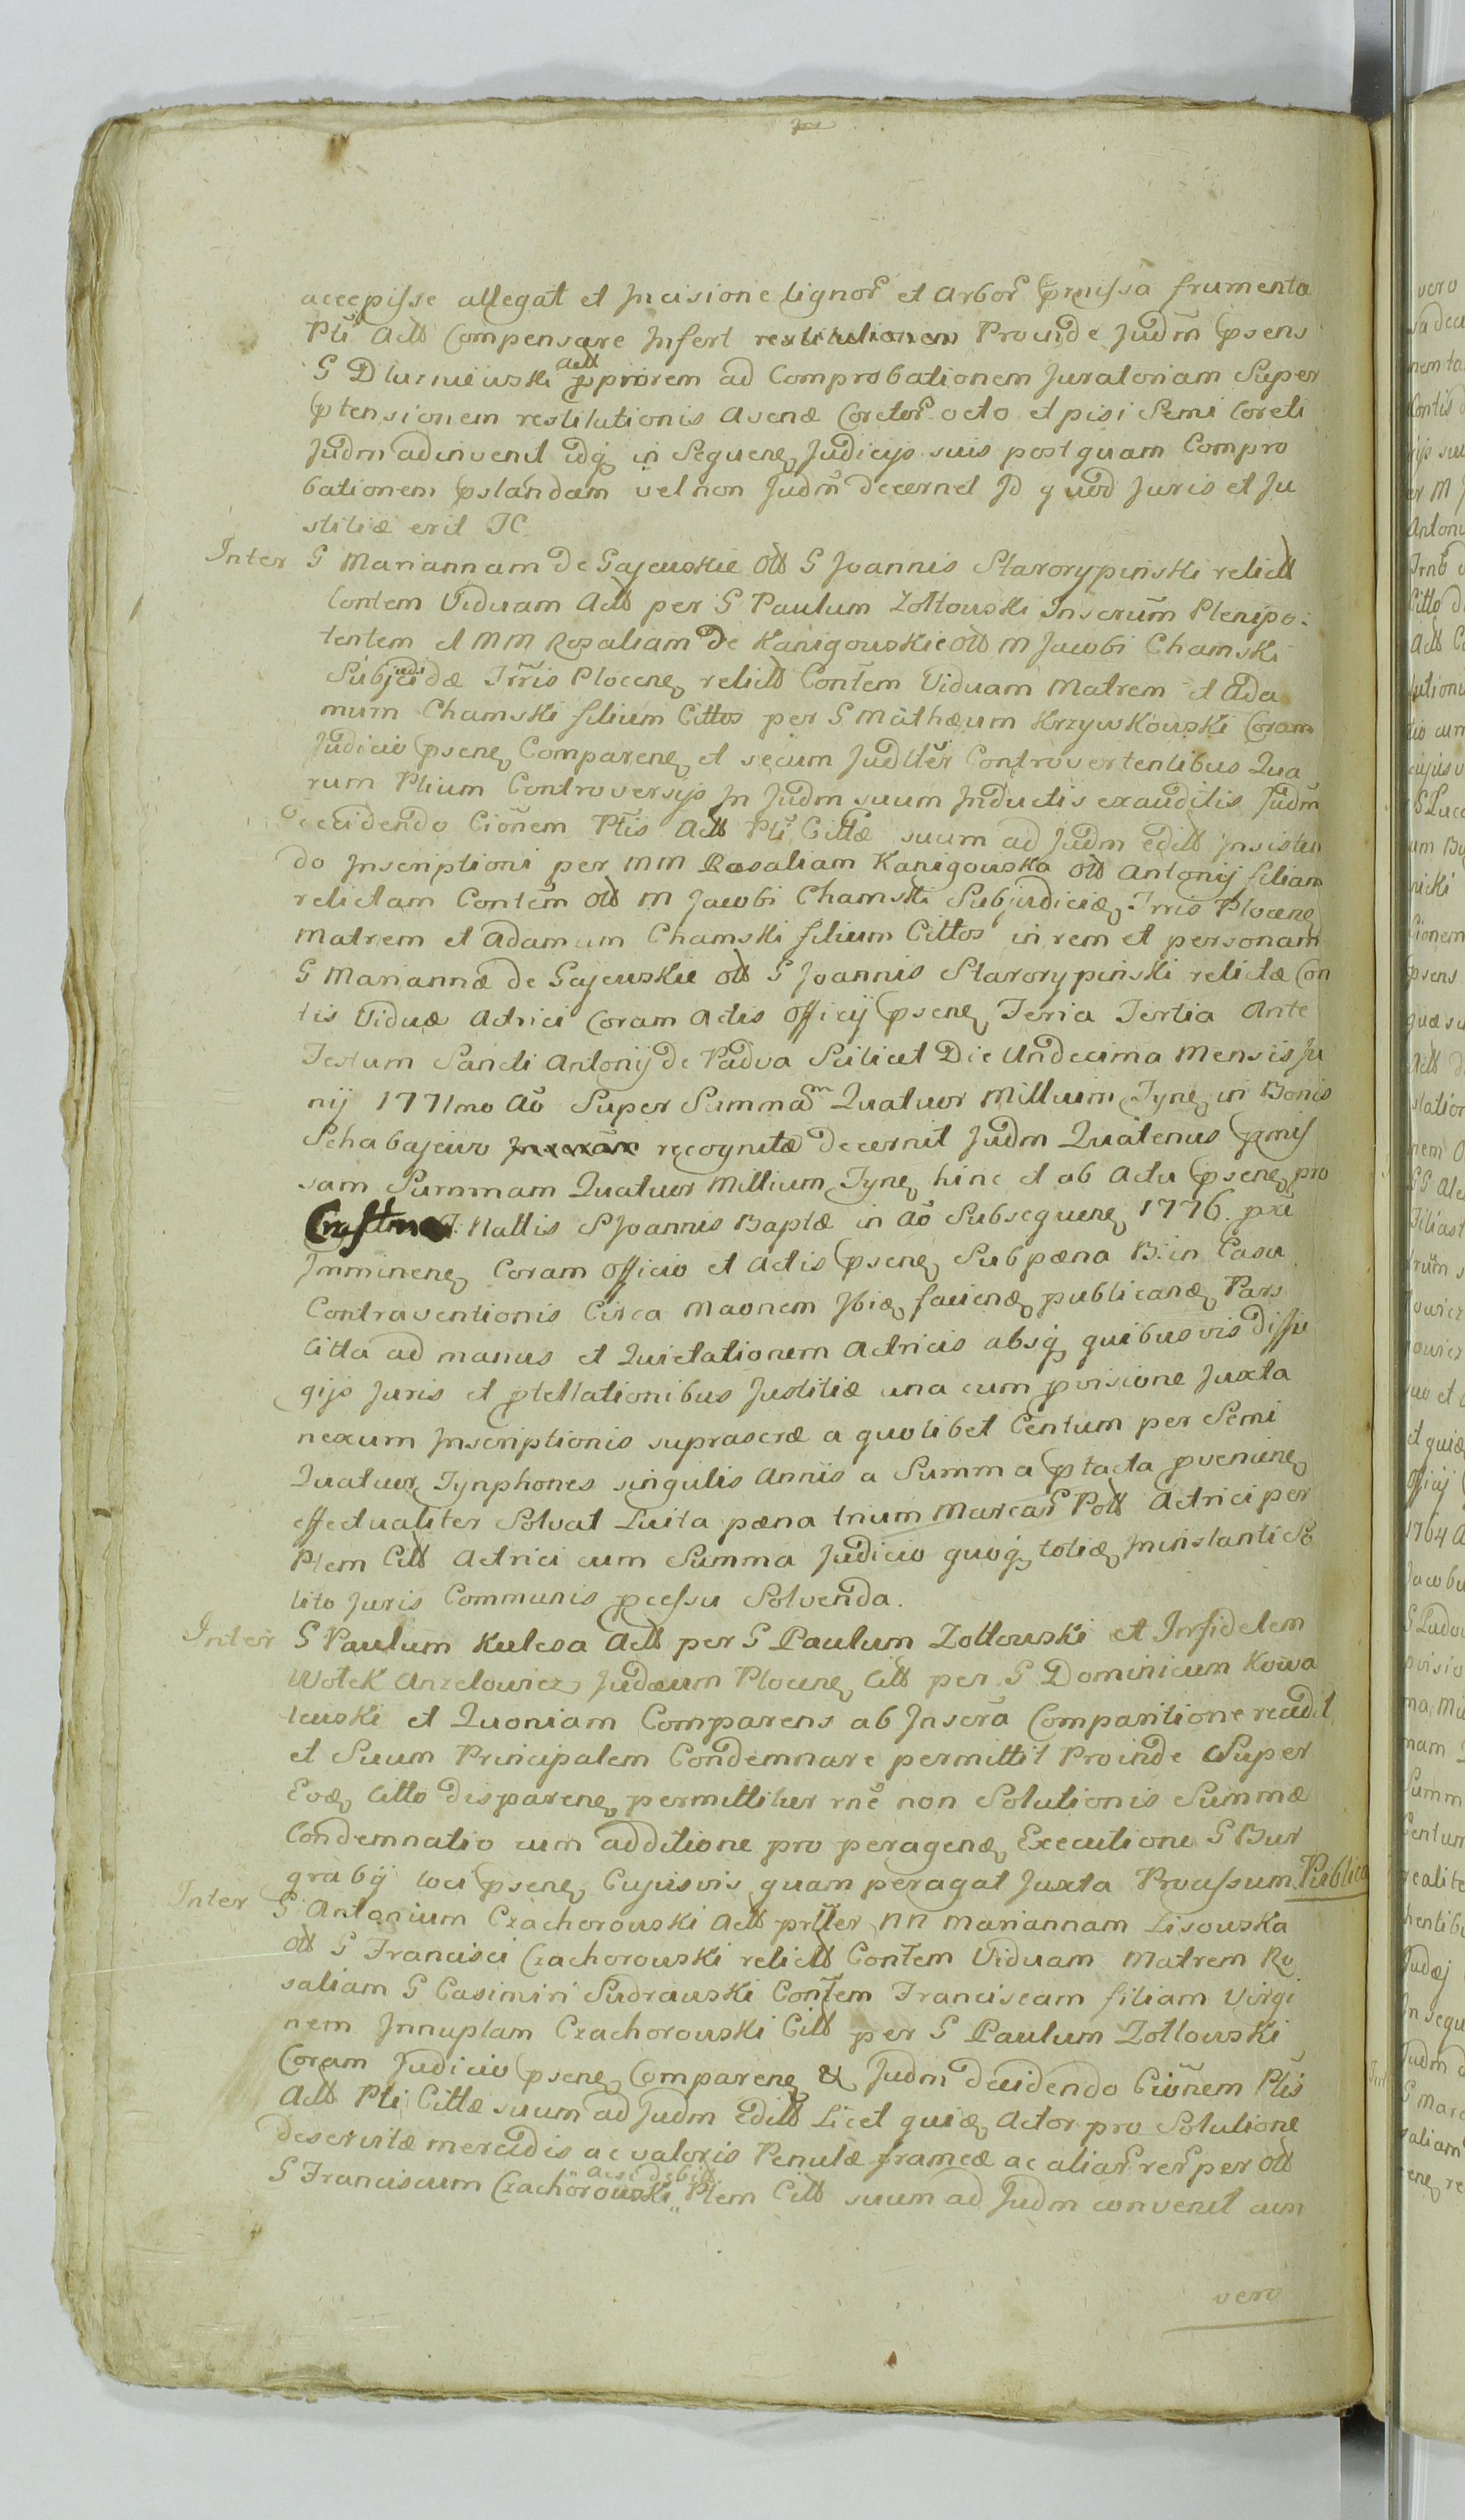 accepisse allegat et Incisione lignor et Arbor pmissa frumenta
Pti Actt Compensare Infert restitutionem Proinde Judm psens
Actt
G Dluzniewski ppriorem ad Comprobationem Juratoriam Super
ptensionem restitutionis Avenæ Coretor octo et pisi Semi Coreti
Judm adinvenit idq in Sequenẹ Judicijs suis postquam Compro
bationem pstandam vel non Judm decernet Id quod Juris et Ju
stitiæ erit
Inter G Mariannam de Gajewskie Ott G Joannis Starorypinski relictt
Contem Viduam Actt per G Paulum Zoltowski Inscrum Plenipo:
tentem et MM Rozaliam de Kanigowskie ott M Jacobi Chamski
Subjudi
cidæ Trris Plocenẹ relictt Contem Viduam Matrem et Ada
mum Chamski filium Cittos per G Mathæum Krzywkowski Coram
Judicio psenẹ Comparenẹ et secum Judlter Controvertentibus Qua
rum Ptium Controversijs In Judm suum Inductis exauditis Judm
Decidendo Cionem Ptis Actt Pti Cittæ suum ad Judm editt Insisten
do Inscriptioni per MM Rosaliam Kanigowska ott Antonij filiam
relictam Contem ott M Jacobi Chamski Subjudiciẹ Trris Plocenẹ
Matrem et Adamum Chamski filium Cittos in rem et personam
G Mariannæ de Gajewskie ott G Joannis Starorypinski relictæ Con
tis Viduæ Actrici Coram Actis Officij psenẹ Feria Tertia Ante
Festum Sancti Antonij de Padua Scilicet Die Undecima Mensis Ju
nij 1771mo Ao Super Summam Quatuor Millium Tynẹ in Bonis
Schabajewo recognitæ decernit Judm Quatenus pmis
sam Summam Quatuor Millium Tynẹ hinc et ab Actu psenẹ pro
Crastino F. Natlis S Joannis Baptæ in Ao Subsequenẹ 1776. pxi
Imminenẹ Coram Officio et Actis psenẹ Sub pæna B. in Casu
Contraventionis Circa Maonem Ibiẹ faciendẹ publicandẹ Pars
Citta ad manus et Quietationem Actricis absq quibusvis diffu
gijs Juris et ptellationibus Justitiæ una cum pvisione Juxta
nexum Inscriptionis suprascræ a quolibet Centum per Semi
Quatuor Tynphones singulis Annis a Summa ptacta pvenienẹ
effectualiter Solvat Luita pæna trium Marcar Poll Actrici per
Ptem Citt Actrici cum Summa Judicio quoq totiẹ Ininstanti So
lito Juris Communis pcessu Solvenda.
Inter G Paulum Kulesa Actt per G Paulum Zoltowski et Infidelem
Wolek Anzelowicz Judæum Plocenẹ Citt per G Dominicum Kowa
lewski et Quoniam Comparens ab Inscra Comparitione recedit
et Suum Principalem Condemnare permittit Proinde Super
Eodẹ Citto disparenẹ permittitur rne non Solutionis Summæ
Condemnatio cum additione pro peragendẹ Executione G Bur
grabij loci psenẹ Cujusvis quam peragat Juxta Processum Public
Inter G Antonium Czachorowski Actt NN Mariannam Lisowska
ott G Francisci Czachorowski relictt Contem Viduam Matrem Ro
saliam G Casimiri Sudrawski Contem Franciscam filiam Virgi
nem Innuptam Czachorowski Citt per G Paulum Zoltowski
Coram Judicio psenẹ Comparenẹ & Judm decidendo Cionem Ptis
Actt Pti Cittæ suum ad Judm Editt Licet quidẹ Actor pro Solutione
deservitæ mercedis ac valoris Penulæ frameæ ac aliar rer per ott
acsi debitt
G Franciscum Czachorowski Ptem Citt suum ad Judm convenit cum
vero